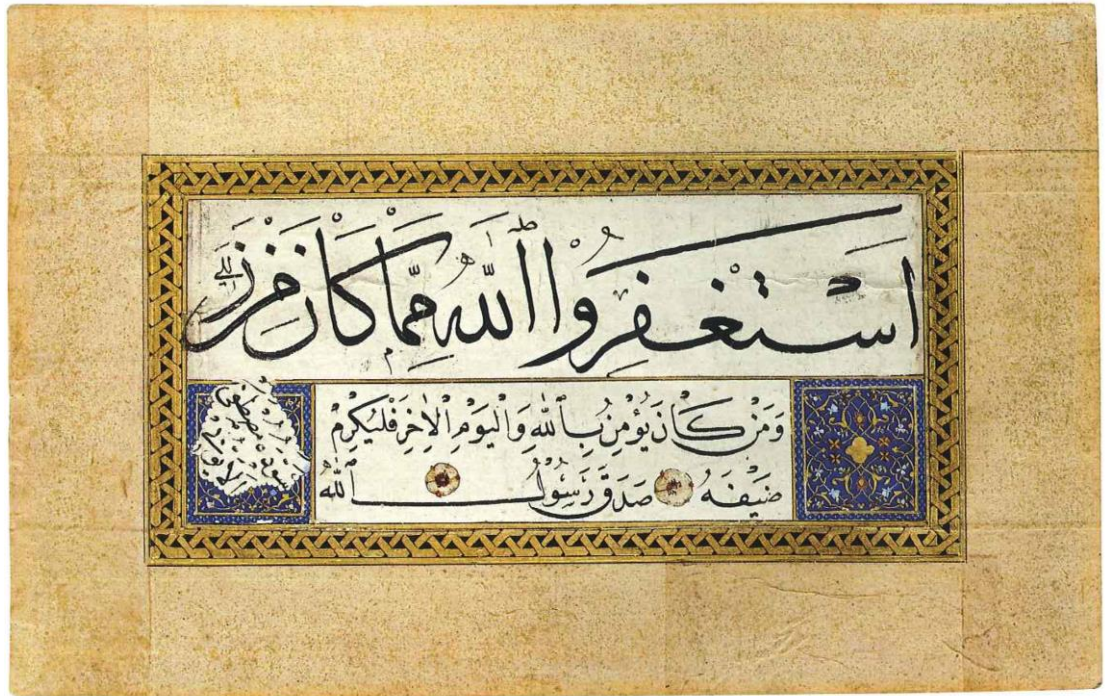 اَسْتَغْفِرُوا اللّٰهَ مِمَّا كَانَ مِنْ زَلَلِي
وَمَنْ كَانَ يُؤْمِنُ بِاللّٰهِ وَالْيَوْمِ الْاٰخِرِ فَلْيُكْرِمْ
ضَيْفَهُ صَدَقَ رَسُولُ اللّٰهِ